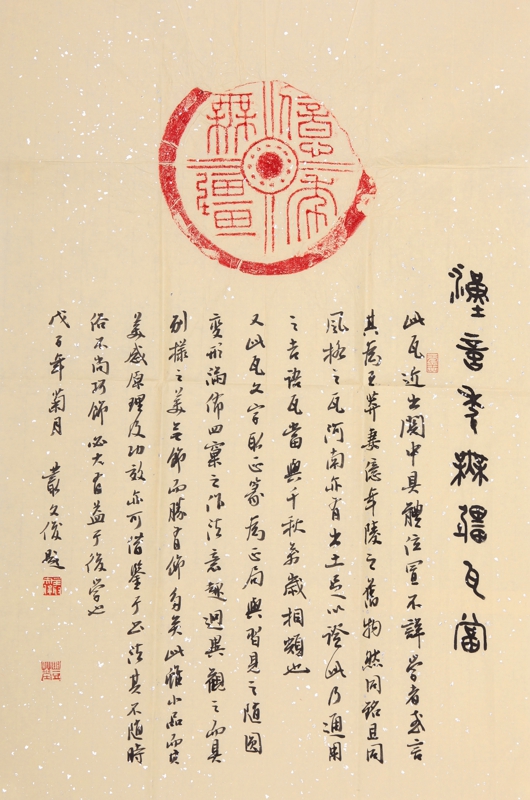 億年無疆
漢億年無疆瓦當
此瓦近出關中具體位置不詳學者或言
其爲王莽妻億年陵之舊物然同銘且同
風格之瓦河南亦有出土足以證此乃通用
之吉語瓦當與千秋萬歲相類也
又此瓦文字取正篆爲正局與習見之隨圓
變形滿佈四窠之作法意趣迥異觀之而具
别樣之美無飾而勝有飾多矣此雖小品而其
美感原理及功效亦可借鑒于書法其不隨時
俗不尚巧飾必大有益于後學也
戊子年菊月 叢文俊題